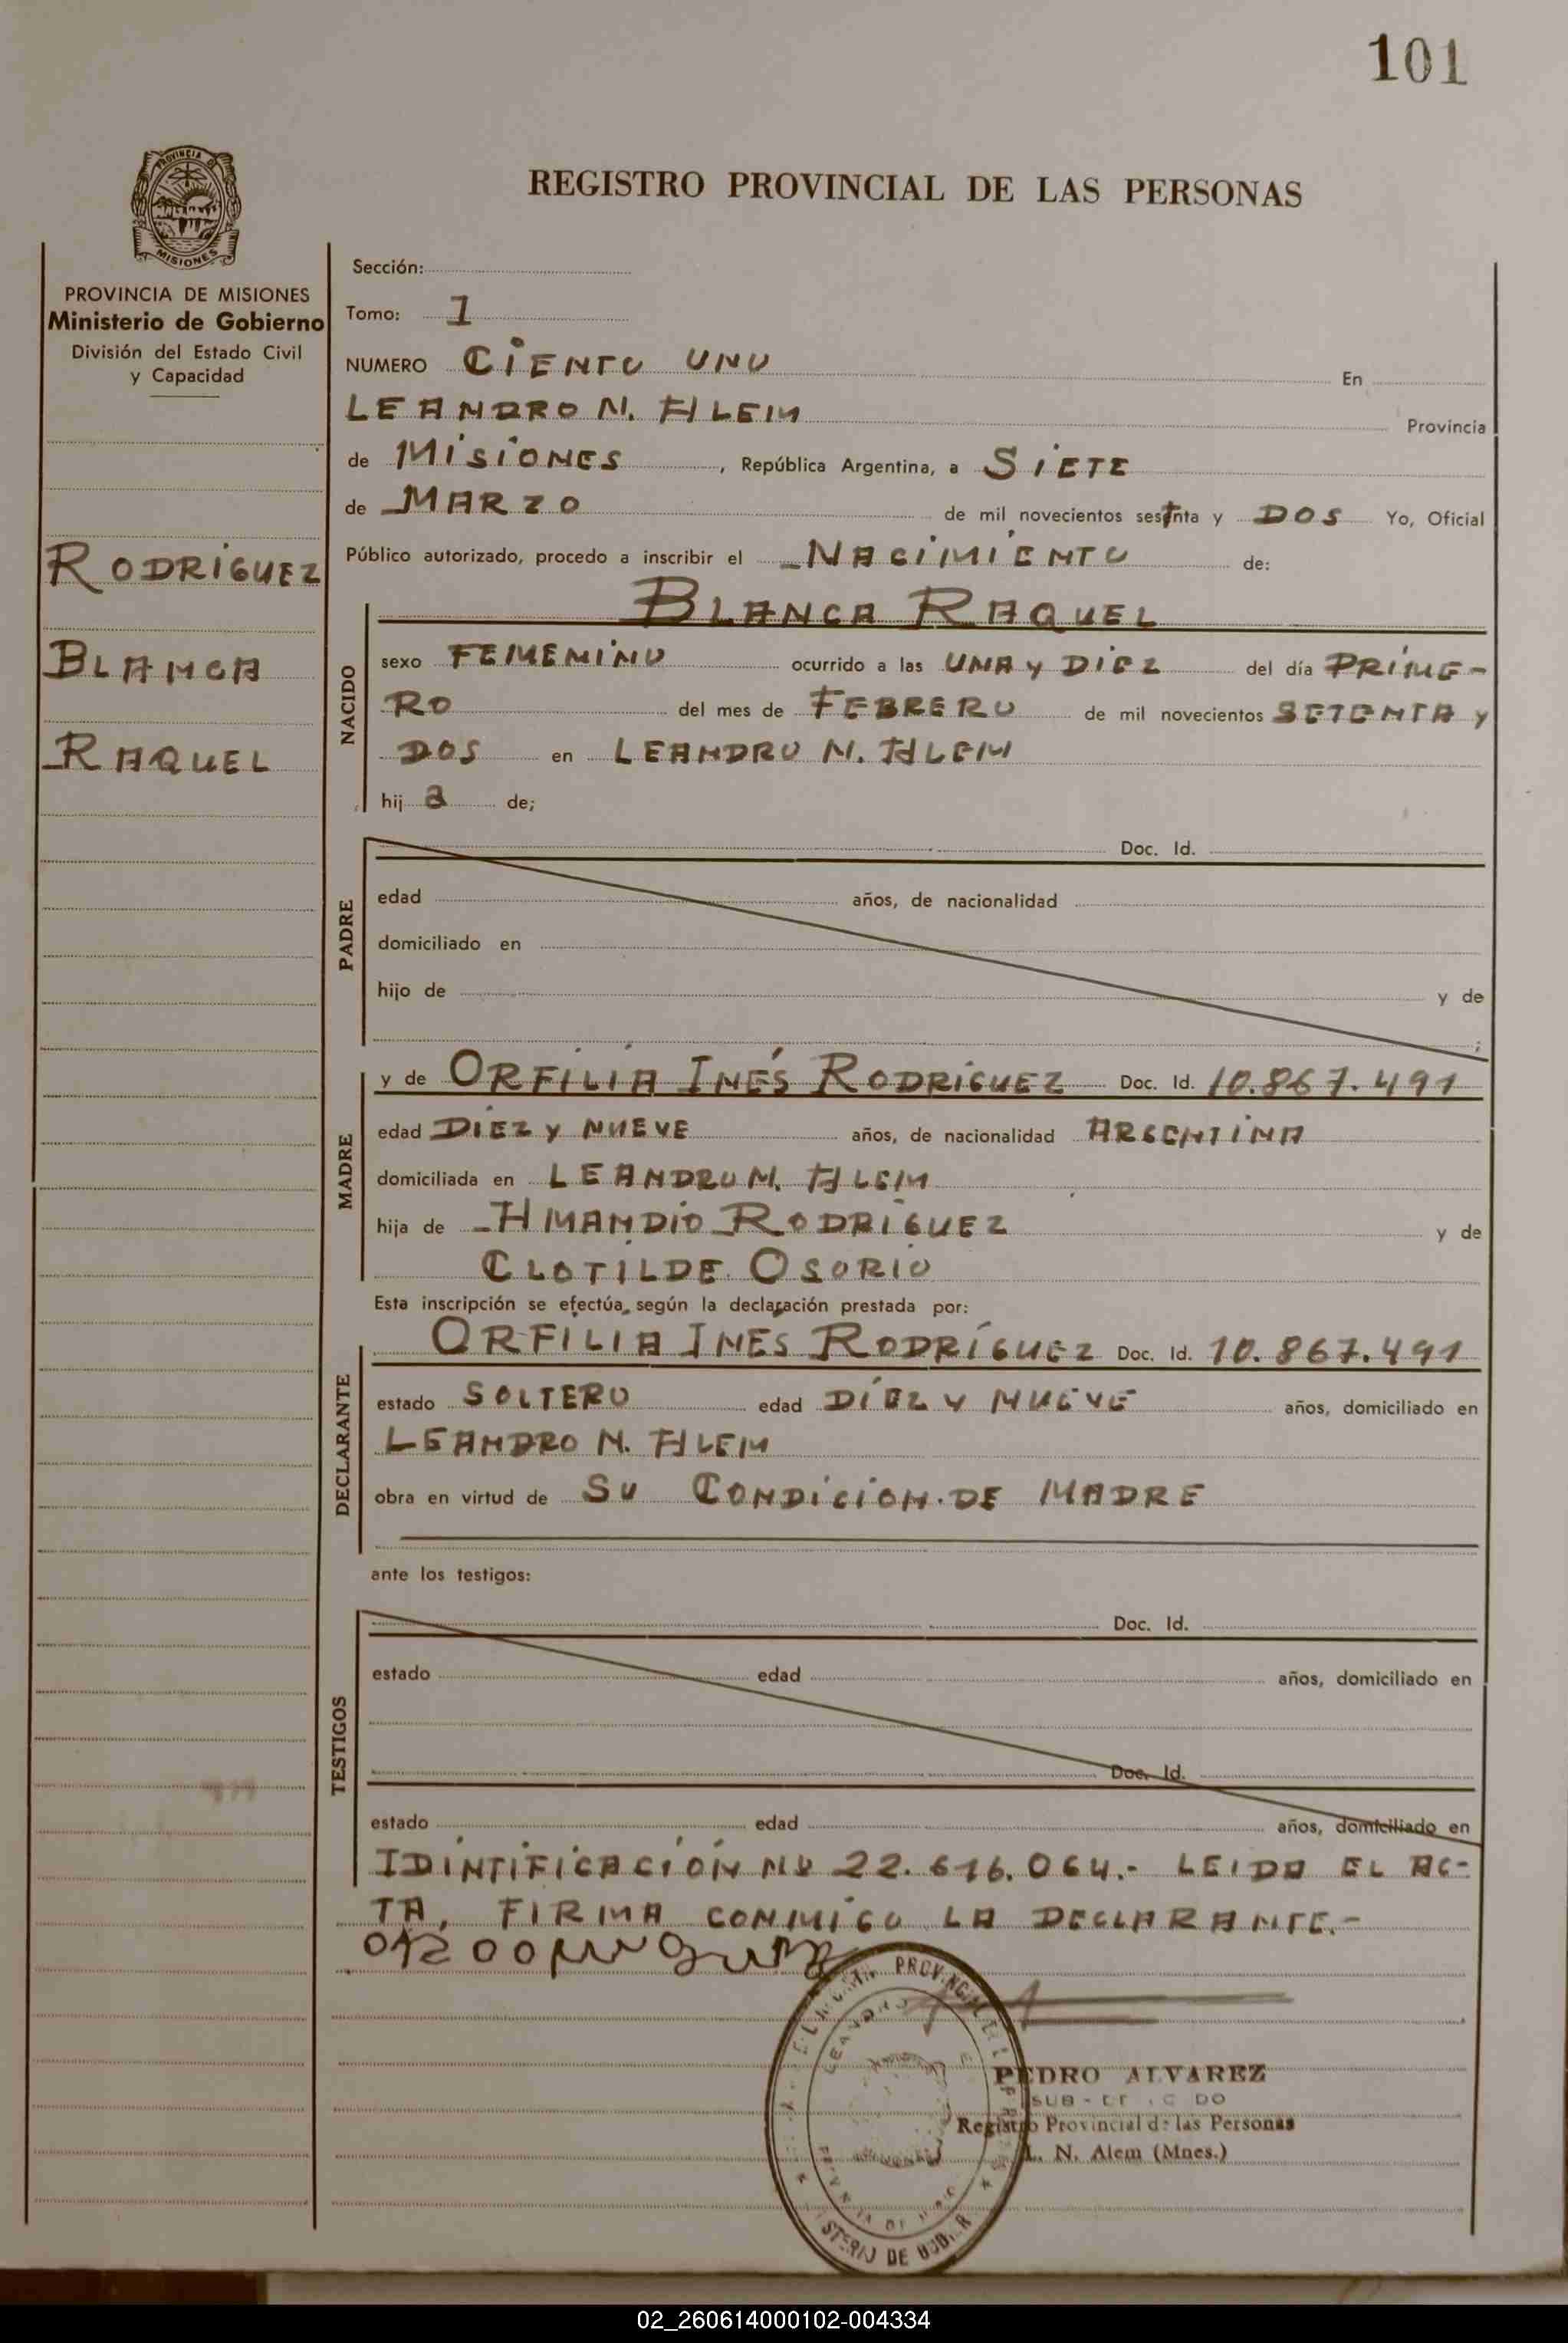 101
PROVINCIA DE
MISIONES
REGISTRO PROVINCIAL DE LAS PERSONAS
PROVINCIA DE MISIONES
Ministerio de Gobierno
División del Estado Civil
y Capacidad
RODRÍGUEZ
BLANCA
RAQUEL
Sección:
Tomo: 1
NUMERO CIENTO UNO En
LEANDRO N. ALEM Provincia
de MISIONES, República Argentina, a SIETE
de MARZO de mil novecientos sestnta y DOS Yo, Oficial
Público autorizado, procedo a inscribir el NACIMIENTO de:
NACIDO
BLANCA RAQUEL
sexo FEMENINO ocurrido a las UNA y DIEZ del día PRIME-
RO del mes de FEBRERO de mil novecientos SETENTA y
DOS en LEANDRO N. ALEM
hij a de;
PADRE
Doc. Id.
edad años, de nacionalidad
domiciliado en
hijo de y de
;
MADRE
y de ORFILIA INÉS RODRÍGUEZ Doc. Id. 10.867.491
edad DIEZ y NUEVE años, de nacionalidad ARGENTINA
domiciliada en LEANDRO N. ALEM
hija de AMANDIO RODRÍGUEZ y de
CLOTILDE OSORIO
Esta inscripción se efectúa, según la declaración prestada por:
DECLARANTE
ORFILIA INES RODRÍGUEZ Doc. Id. 10.867.491
estado SOLTERO edad DIEZ y NUEVE años, domiciliado en
LEANDRO N. ALEM
obra en virtud de SU CONDICION DE MADRE
ante los testigos:
TESTIGOS
Doc. Id.
estado edad años, domiciliado en
Doc. Id.
estado edad años, domiciliado en
IDINTIFICACIÓN No 22.616.064.- LEIDA EL AC-
TA, FIRMA CONMIGO LA DECLARANTE.-
PEDRO ALVAREZ
Registro Provincial de las Personas
L. N. Alem (Mnes.)
02_260614000102-004334